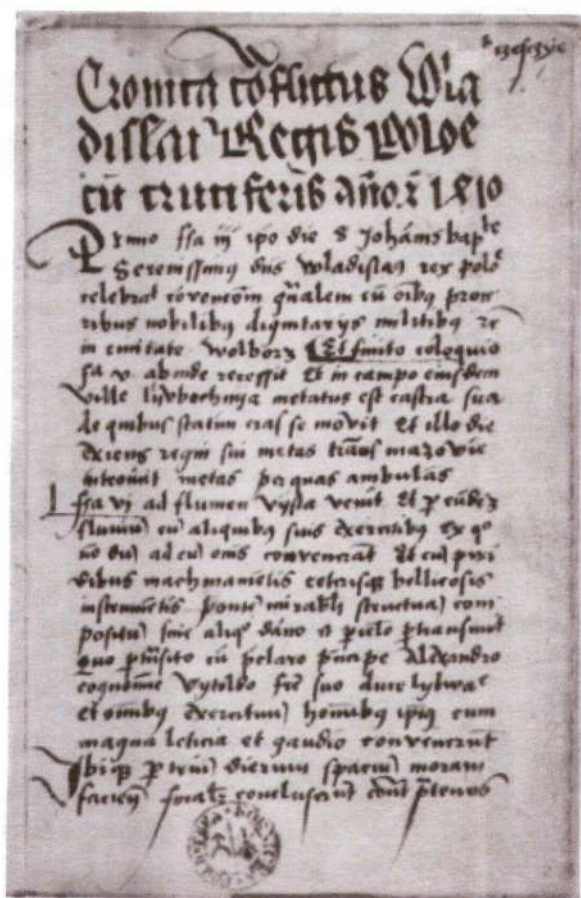 Cronica cōflictus Wla
dislai Regis poloē
cū cruciferis año χ 1410
Primo ffa iij ipō die s Johānis bapᵗᵉ
Serenissimꝯ dñs Wladislaꝯ rex poloᵉ
celebrat cōvencōm gñalem cū oībꝯ proce
ribus nobilibꝯ dignitarys militibꝯ
in civitate Wolborz Et finito coloquio
fa v abinde recessit Et in campo eiusdem
ville lubochnya metatus est castra sua
de quibus statim cras se movit Et illo die
exiens regni sui metas trans mazovie
metas per quas ambulās
ffa vj ad flumen vysla venit Et p eūdez
fluviū cū aliquibꝯ suis exercitibus ex qo
nō dū ad eū omīs convenerat Et cū pixi
dibus machinamētis ceterisqꝫ bellicosis
instrumētis ponte mirabili structura com
positū sine aliqo dāno et pīclo ptransivit
Quo ptrāsito cū pclaro pncipe Alexandro
cognomine Vytoldo fre suo duce lytwaᵉ
et omībꝯ exercituū homībꝯ ipiꝯ cum
magna leticia et gaudio convenerūt
Ibiqꝫ p trium dierum spacium moram
facieñ finalr concluserūt